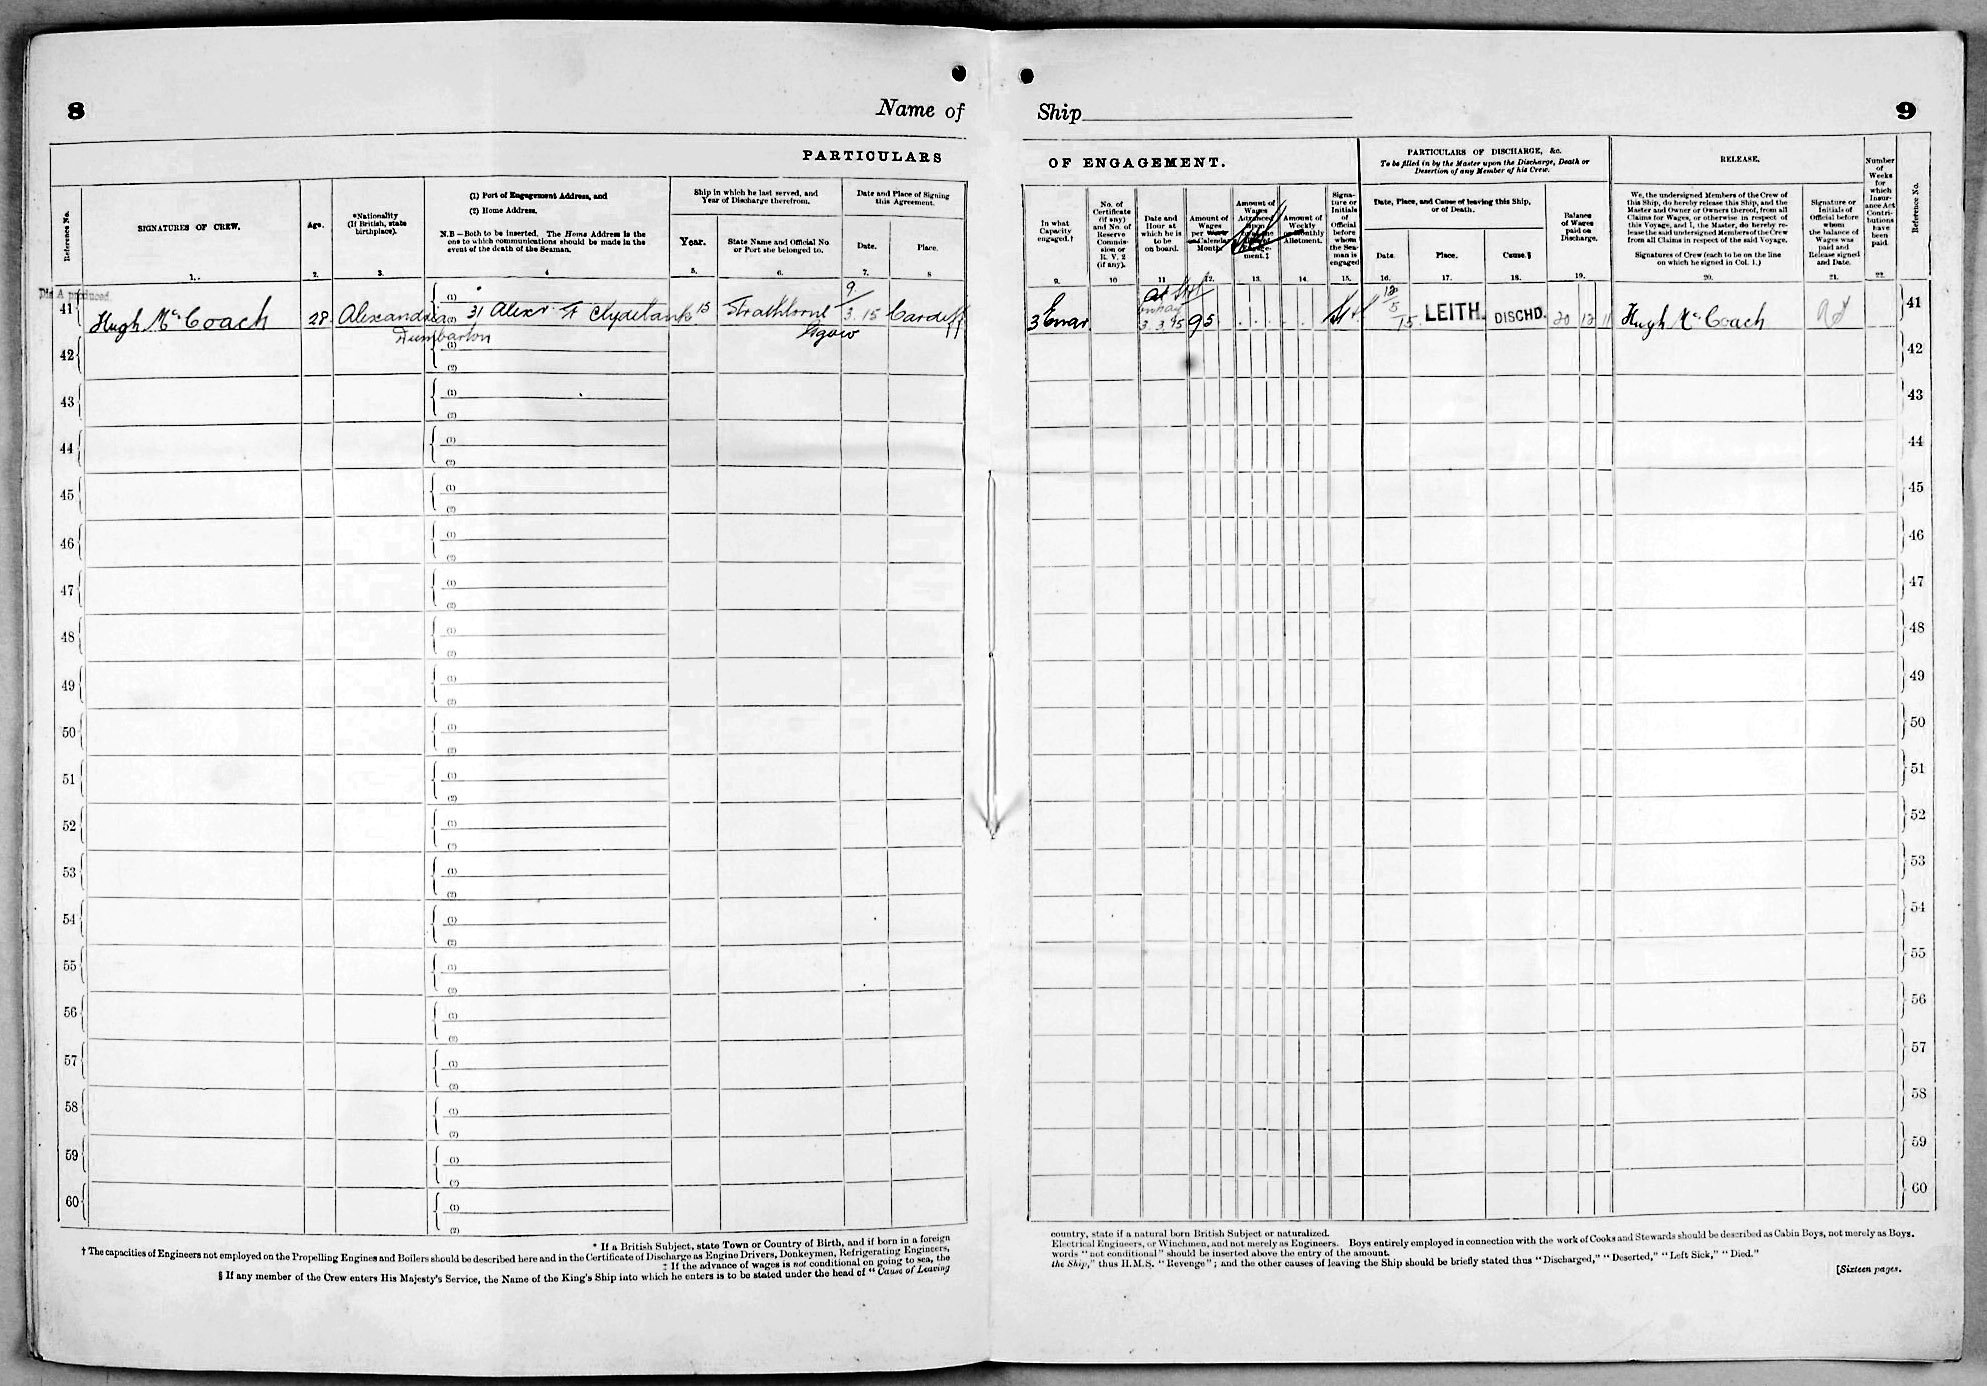 8
Name of
PARTICULARS
Reference No.
SIGNATURES OF CREW.
1.
Age.
2.
*Nationality
(If British, state
birthplace).
3.
(1) Port of Engagement Address, and
(2) Home Address.
N.B—Both to be inserted. The Home Address is the
one to which communications should be made in the
event of the death of the Seaman.
4
Ship in which he last served, and
Year of Discharge therefrom.
Year.
5.
State Name and Official No
or Port she belonged to.
6.
Date and Place of Signing
this Agreement.
Date.
7.
Place.
8
Dis A produced.
41
Hugh McCoach
28
Alexandria
Dumbarton
(1)
(2)
31 Alexr St Clydebank
15
Strathlorne
Glgow
9.
3.15
Cardiff
42
(1)
(2)
43
(1)
(2)
44
(1)
(2)
45
(1)
(2)
46
(1)
(2)
47
(1)
(2)
48
(1)
(2)
49
(1)
(2)
50
(1)
(2)
51
(1)
(2)
52
(1)
(2)
53
(1)
(2)
54
(1)
(2)
55
(1)
(2)
56
(1)
(2)
57
(1)
(2)
58
(1)
(2)
59
(1)
(2)
60
(1)
(2)
* If a British Subject, state Town or Country of Birth, and if born in a foreign
† The capacities of Engineers not employed on the Propelling Engines and Boilers should be described here and in the Certificate of Discharge as Engine Drivers, Donkeymen, Refrigerating Engineers,
‡ If the advance of wages is not conditional on going to sea, the
§ If any member of the Crew enters His Majesty's Service, the Name of the King's Ship into which he enters is to be stated under the head of "Cause of Leaving
Ship
9
OF ENGAGEMENT.
PARTICULARS OF DISCHARGE, &c.
To be filled in by the Master upon the Discharge, Death or
Desertion of any Member of his Crew.
RELEASE.
In what
Capacity
engaged.†
9.
No. of
Certificate
(if any)
and No. of
Reserve
Commis-
sion or
R. V. 2
(if any).
10
Date and
Hour at
which he is
to be
on board.
11
Amount of
Wages
per Week
or Calendar
Month.
12.
Amount of
Wages
Advanced
Upon
ment.‡
13.
Amount of
Weekly
or Monthly
Allotment.
14.
Signa-
ture or
Initials
of
Official
before
whom
the Sea-
man is
engaged
15.
Date, Place, and Cause of leaving this Ship,
or of Death.
Date.
16.
Place.
17.
Cause.§
18.
Balance
of Wages
paid on
Discharge.
19.
We, the undersigned Members of the Crew of
this Ship, do hereby release this Ship, and the
Master and Owner or Owners thereof, from all
Claims for Wages, or otherwise in respect of
this Voyage, and I, the Master, do hereby re-
lease the said undersigned Members of the Crew
from all Claims in respect of the said Voyage.
Signatures of Crew (each to be on the line
on which he signed in Col. 1.)
20.
Signature or
Initials of
Official before
whom
the balance of
Wages was
paid and
Release signed
and Date.
21.
Number
of
Weeks
for
which
Insur-
ance Act
Contri-
butions
have
been
paid.
22.
Reference No.
3 Engr
95
12
5
15
LEITH.
DISCHD.
20 12 11
Hugh McCoach
41
42
43
44
45
46
47
48
49
50
51
52
53
54
55
56
57
58
59
60
country, state if a natural born British Subject or naturalized.
Electrical Engineers, or Winchmen, and not merely as Engineers. Boys entirely employed in connection with the work of Cooks and Stewards should be described as Cabin Boys, not merely as Boys.
words "not conditional" should be inserted above the entry of the amount.
the Ship," thus H.M.S. "Revenge"; and the other causes of leaving the Ship should be briefly stated thus "Discharged," "Deserted," "Left Sick," "Died."
[Sixteen pages.